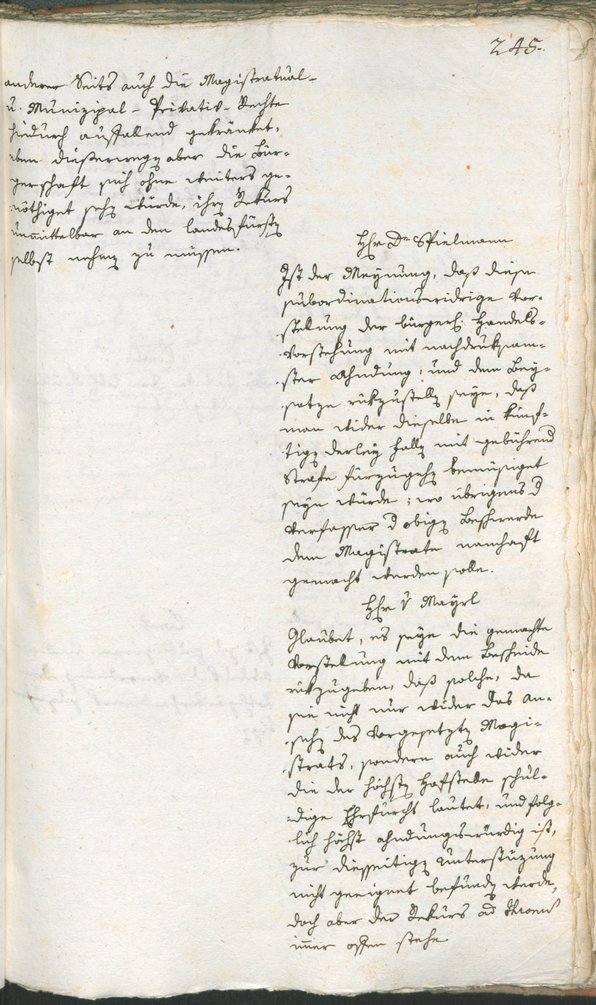 245.
anderer Seits auch die Magistratual-
u. Munizipal- Privativ- Rechte
hiedurch auffallend gekränket,
eben dießerwegen aber die Bür-
gerschaft sich ohne weiters ge-
nöthiget sehen würde, ihren Rekurs
unmittelbar an den Landesfürsten
selbst nehmen zu müssen.
Hr Dr Spielmann
Ist der Meynung, daß diese
subordinationswidrige Vor-
stellung der bürgerl: Handels-
Vorstehung mit nachdruksam-
ster Ahndung, und dem Bey-
satze rükzustellen seye, daß
man wider dieselbe in künf-
tigen derley Fällen mit gebührend
Strafe fürzugehen bemüsiget
seyn würde; wo übrigens d
Verfasser d obigen Beschwerde
dem Magistrate namhaft
gemacht werden solle.
Hr v Mayrl
Glaubet, es seye die gemachte
Vorstellung mit dem Bescheide
rükzugeben, daß solche, da
sie nicht nur wider das An-
sehen des vorgesetzten Magi-
strats, sondern auch wider
die der höchsten Hofstelle schul-
dige Ehrfurcht lautet, und folg-
lich höchst ahndungswürdig ist,
zur diesseitigen Unterstüzung
nicht geeignet befunden werde,
doch aber der Rekurs ad thronum
imer offen stehe